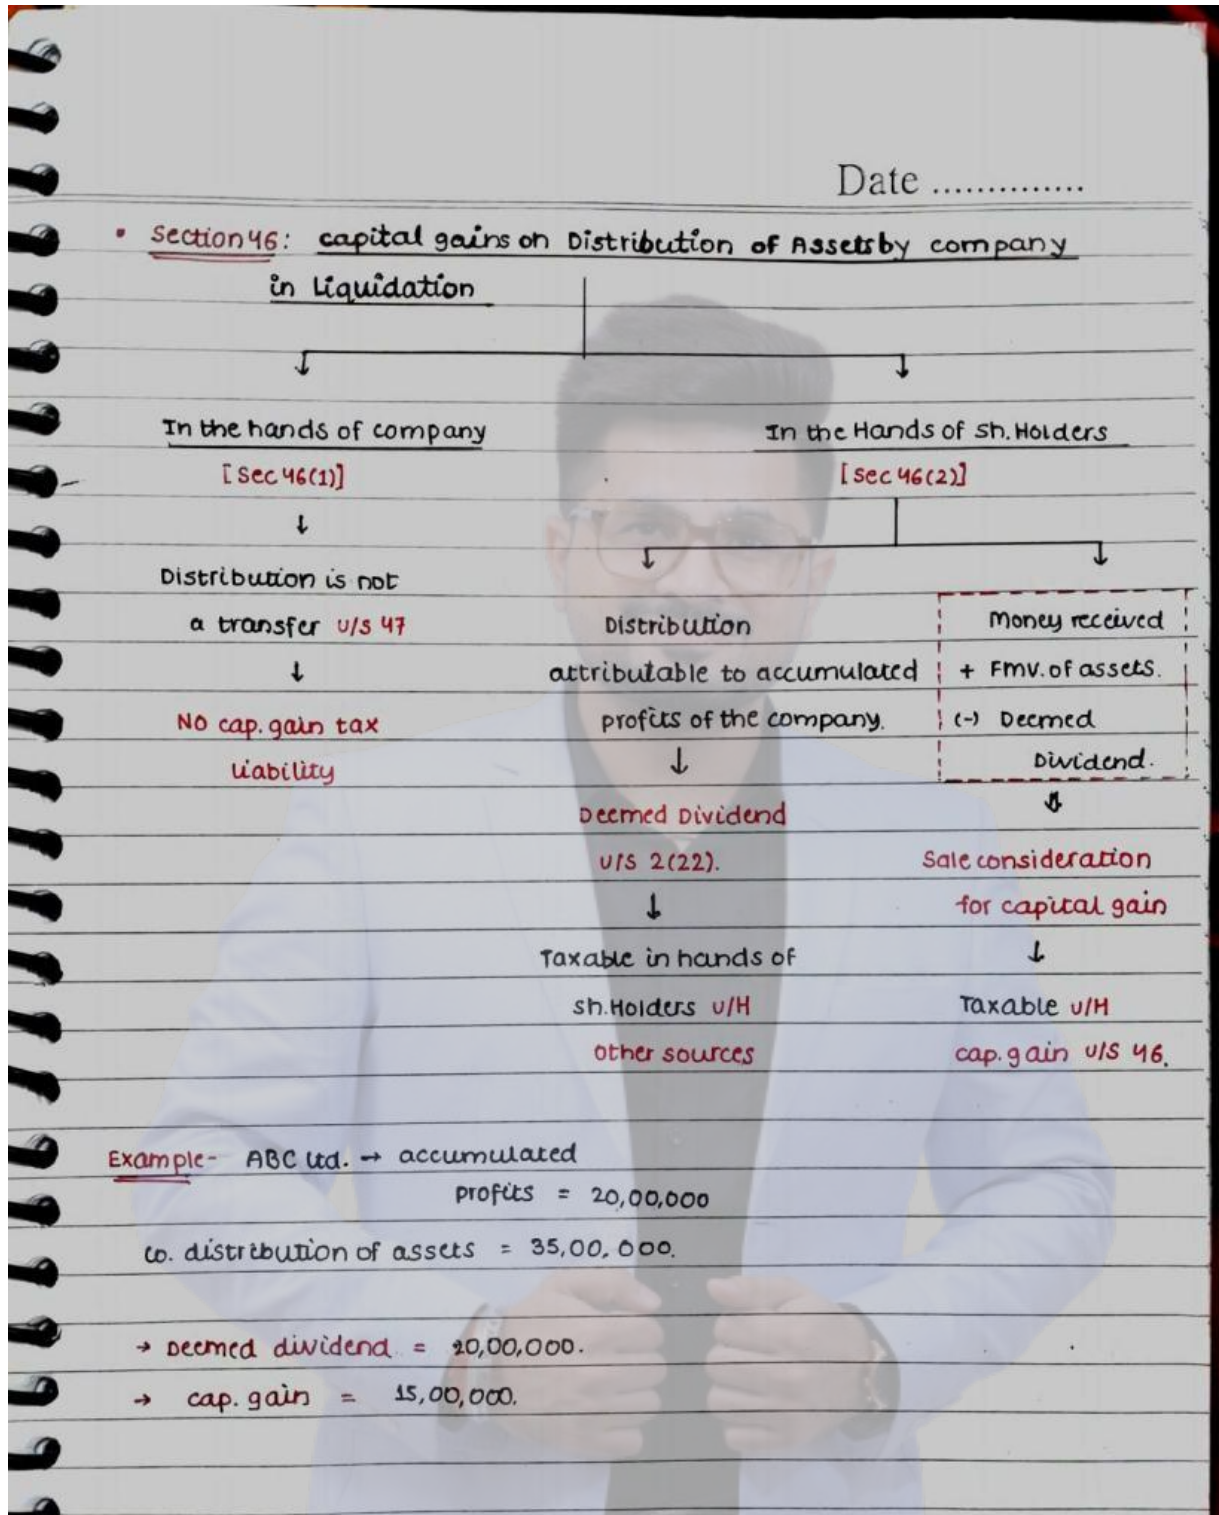 Date ..............
• Section 46: capital gains on Distribution of Assets by company
in Liquidation
In the hands of company
[Sec 46(1)]
↓
Distribution is not
a transfer U/S 47
↓
NO cap. gain tax
liability
In the Hands of Sh. Holders
[Sec 46(2)]
Distribution
attributable to accumulated
profits of the company.
↓
Deemed Dividend
U/S 2(22).
↓
Taxable in hands of
Sh. Holders U/H
other sources
Money received
+ FMV. of assets.
(-) Deemed
Dividend.
⇓
Sale consideration
for capital gain
↓
Taxable U/H
cap. gain U/S 46.
Example- ABC Ltd. → accumulated
profits = 20,00,000
co. distribution of assets = 35,00,000.
→ Deemed dividend = 20,00,000.
→ cap. gain = 15,00,000.